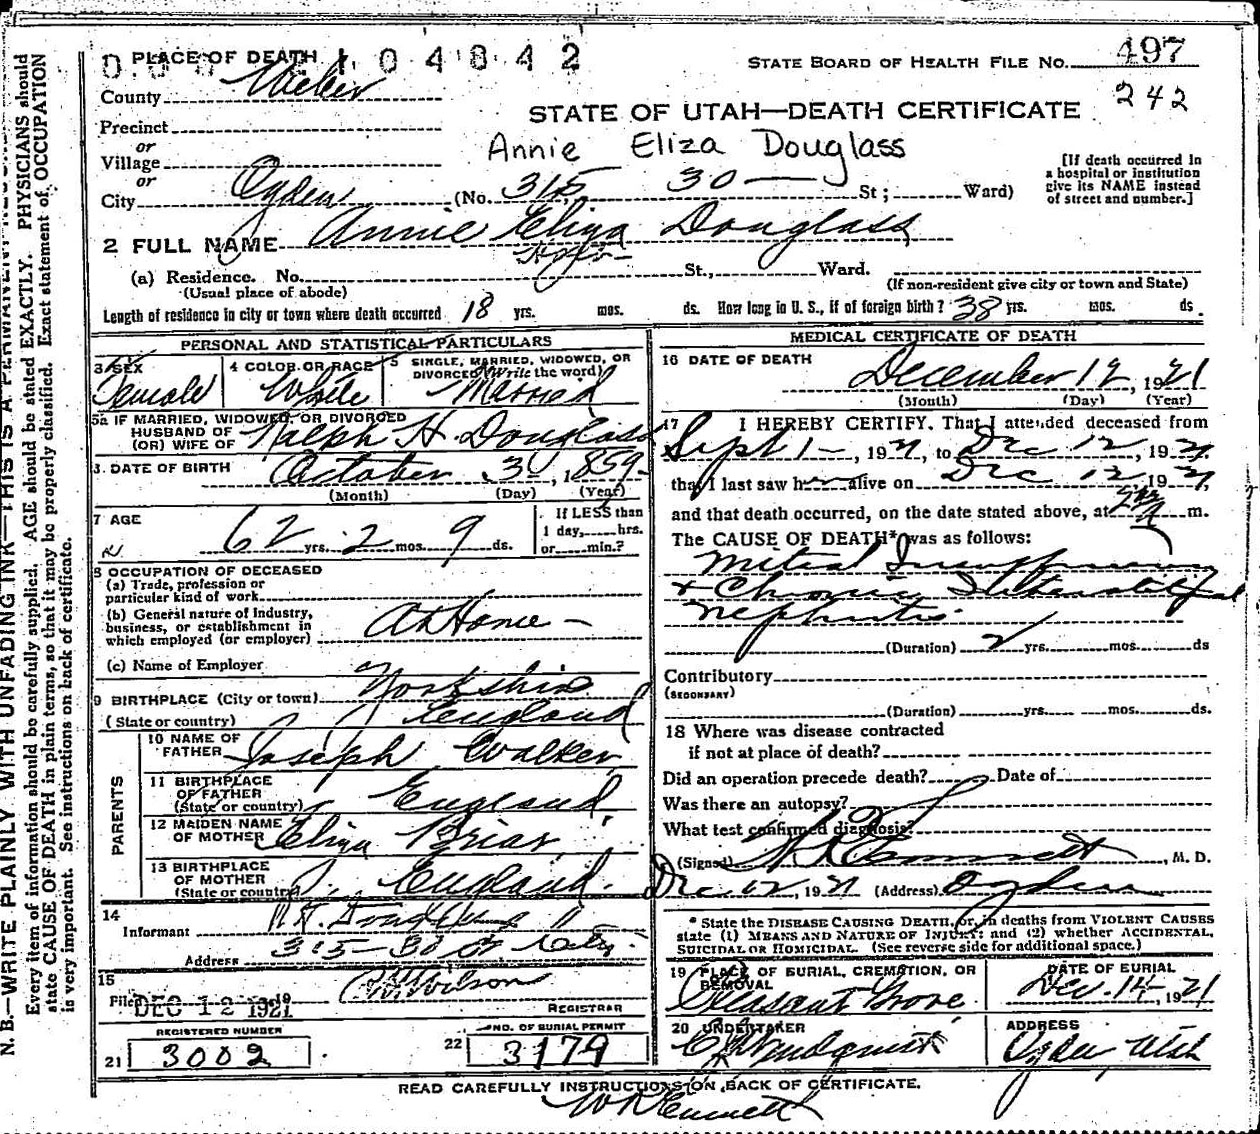 N. B.—WRITE PLAINLY, WITH UNFADING INK—THIS IS A PERMANENT
Every item of information should be carefully supplied. AGE should be stated EXACTLY. PHYSICIANS should
state CAUSE OF DEATH in plain terms, so that it may be properly classified. Exact statement of OCCUPATION
is very important. See instructions on back of certificate.
104842
PLACE OF DEATH
STATE BOARD OF HEALTH FILE NO. 497
County Weber
242
STATE OF UTAH—DEATH CERTIFICATE
Precinct
or
Annie Eliza Douglass
Village
or
City Ogden (No. 315 30 St; Ward)
[If death occurred in
a hospital or institution
give its NAME instead
of street and number.]
2 FULL NAME Annie Eliza Douglass
(a) Residence. No. St., Ward.
(Usual place of abode)
(If non-resident give city or town and State)
Length of residence in city or town where death occurred 18 yrs. mos. ds. How long in U. S., if of foreign birth? 38 yrs. mos. ds.
PERSONAL AND STATISTICAL PARTICULARS
3 SEX
Female
4 COLOR OR RACE
White
5 SINGLE, MARRIED, WIDOWED, OR
DIVORCED (Write the word)
Married
5a IF MARRIED, WIDOWED, OR DIVORCED
HUSBAND OF
(OR) WIFE OF Ralph H. Douglass
DATE OF BIRTH October 3, 1859
(Month) (Day) (Year)
7 AGE
62 yrs. 2 mos. 9 ds.
If LESS than
1 day, hrs.
or min.?
8 OCCUPATION OF DECEASED
(a) Trade, profession or
particular kind of work
(b) General nature of Industry,
business, or establishment in
which employed (or employer) At Home -
(c) Name of Employer
9 BIRTHPLACE (City or town) Yorkshire
(State or country) England
PARENTS
10 NAME OF
FATHER Joseph Walker
11 BIRTHPLACE
OF FATHER
(State or country) England
12 MAIDEN NAME
OF MOTHER Eliza Briar
13 BIRTHPLACE
OF MOTHER
(State or country) England.
14
Informant
Address 315-30 St City.
15
Filed DEC 12 1921 Wilson
REGISTRAR
REGISTERED NUMBER
21 3002
NO. OF BURIAL PERMIT
22 3179
MEDICAL CERTIFICATE OF DEATH
16 DATE OF DEATH
December 12, 1921
(Month) (Day) (Year)
17 I HEREBY CERTIFY. That I attended deceased from
Sept 1-, 1921, to Dec 12, 1921
that I last saw her alive on Dec 12 1921
and that death occurred, on the date stated above, at m.
The CAUSE OF DEATH* was as follows:
Mitral Insufficiency
+ Chronic Interstitial
Nephritis
(Duration) 2 yrs. mos. ds
Contributory
(SECONDARY)
(Duration) yrs. mos. ds.
18 Where was disease contracted
if not at place of death?
Did an operation precede death? Date of
Was there an autopsy?
What test confirmed diagnosis?
(Signed) Emmett, M. D.
Dec 12, 1921 (Address) Ogden
* State the DISEASE CAUSING DEATH, or, in deaths from VIOLENT CAUSES
state (1) MEANS AND NATURE OF INJURY; and (2) whether ACCIDENTAL,
SUICIDAL OR HOMICIDAL. (See reverse side for additional space.)
19 PLACE OF BURIAL, CREMATION, OR
REMOVAL
Pleasant Grove
DATE OF BURIAL
Dec. 14, 1921
20 UNDERTAKER
Lindquist
ADDRESS
Ogden Utah
READ CAREFULLY INSTRUCTIONS ON BACK OF CERTIFICATE.
W R Emmett